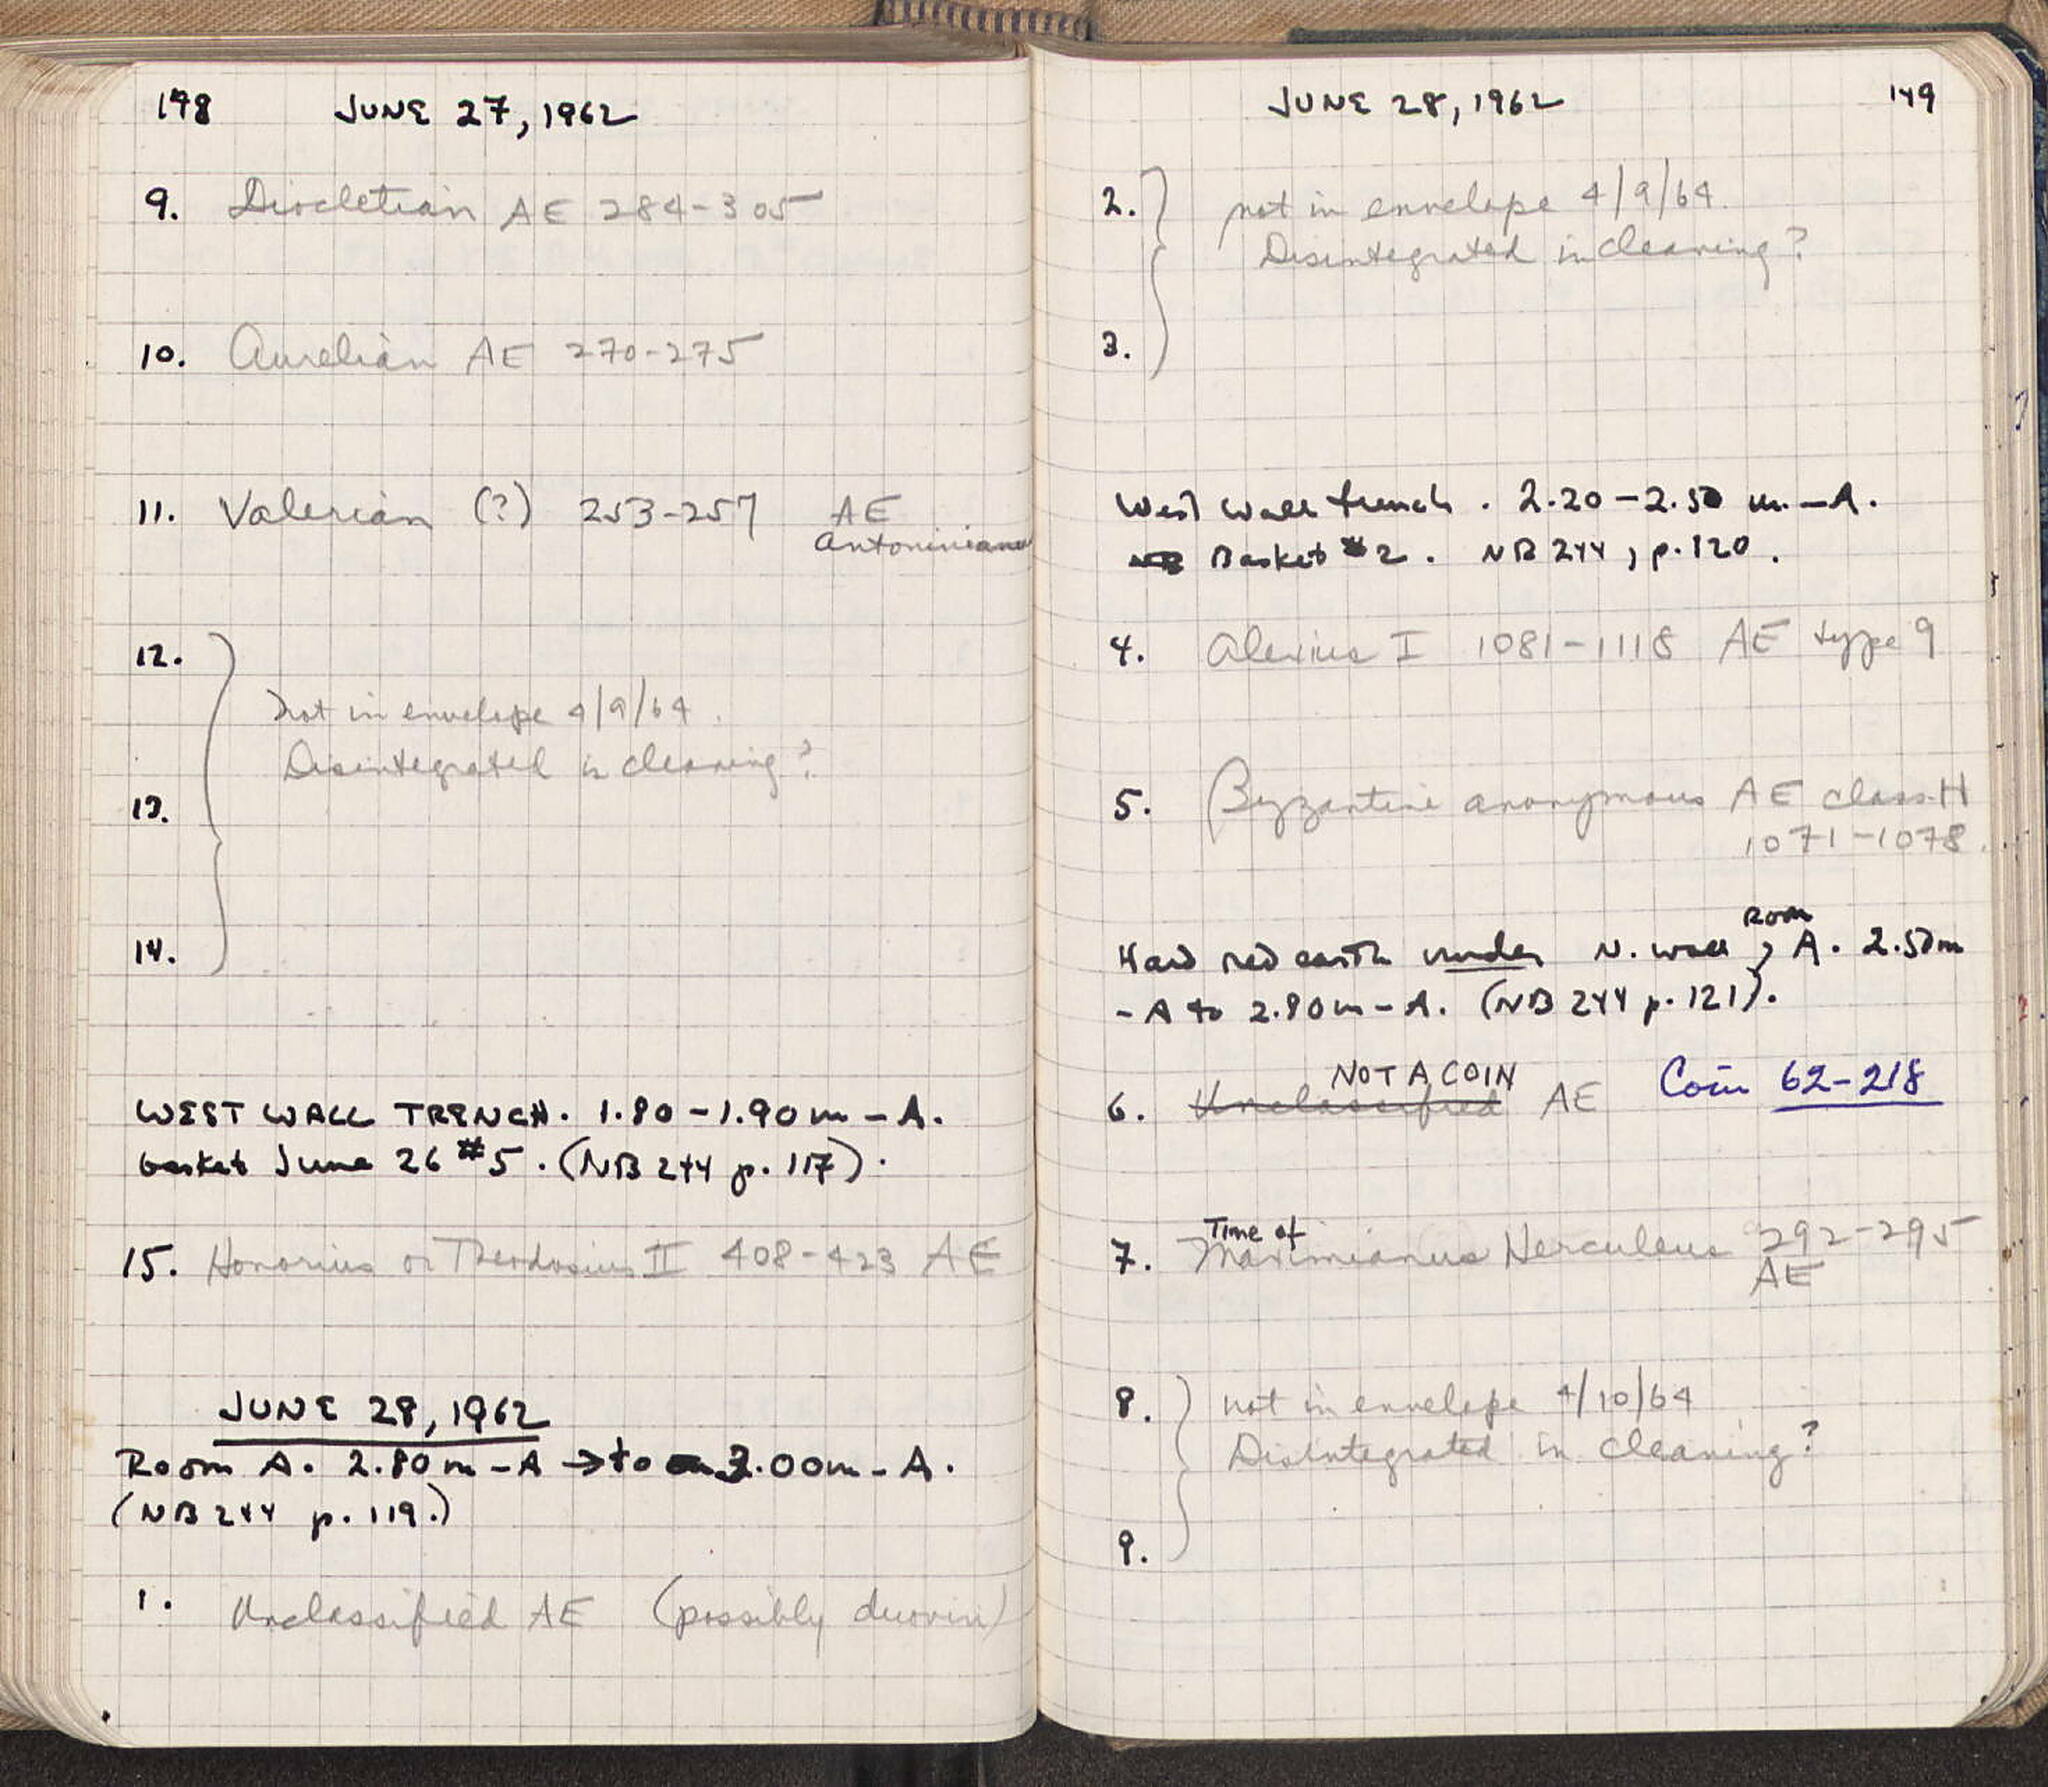 148 JUNE 27, 1962
9. Diocletian AE 284-305
10. Aurelian AE 270-275
11. Valerian (?) 253-257 AE
Antoninianus
12.
not in envelope 4/9/64.
Disintegrated in cleaning?
13.
14.
WEST WALL TRENCH. 1.80-1.90m-A.
basket June 26 #5. (NB 244 p. 117).
15. Honorius or Theodosius II 408-423 AE
JUNE 28, 1962
Room A. 2.80m-A → to 3.00m-A.
(NB 244 p. 119.)
1. Unclassified AE (possibly duoviri)
JUNE 28, 1962 149
2. not in envelope 4/9/64.
Disintegrated in cleaning?
3.
West wall trench. 2.20-2.50 m.-A.
Basket #2. NB 244, p. 120.
4. Alexius I 1081-1118 AE type 9
5. Byzantine anonymous AE class H
1071-1078.
Room
Hard red earth under N. wall, A. 2.50m
-A to 2.80m-A. (NB 244 p. 121).
NOT A COIN
6. Unclassified AE Coin 62-218
Time of
7. Maximianus Herculeus 292-295
AE
8. not in envelope 4/10/64
Disintegrated in cleaning?
9.